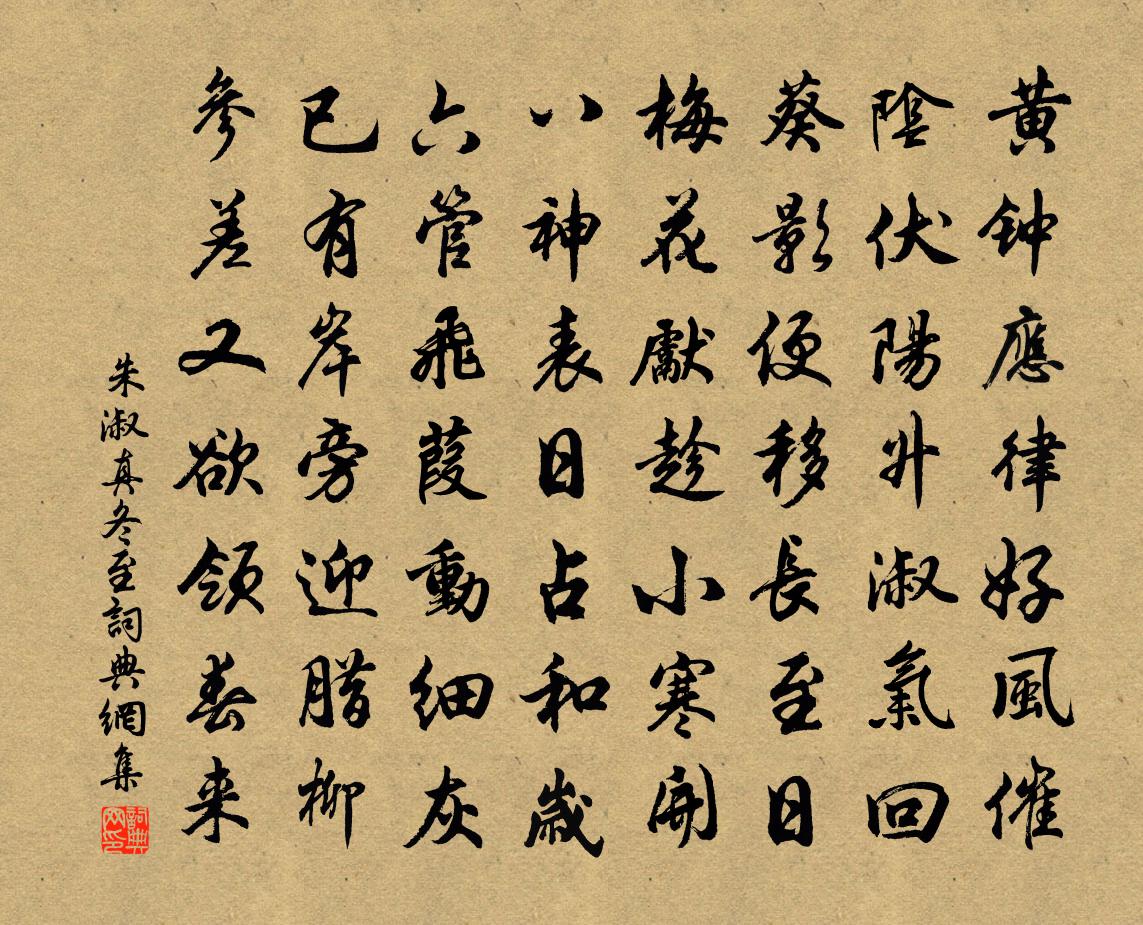 黄钟應律好風催
陰伏陽升淑氣回
葵影便移長至日
梅花獻趁小寒開
八神表日占和歲
六管飛葭動細灰
已有岸旁迎腊柳
參差又欲領春来
朱淑真冬至詞典網集
詞典网印